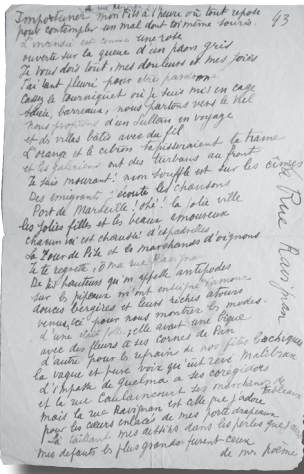 43
Importuner mon Fils à l'heure où tout repose
pour contempler un mal dont toi même souris.
L'incendie est comme une rose
ouverte sur la queue d'un paon gris
Je vous dois tout, mes douleurs et mes joies
J'ai tant pleuré pour être pardonné
Cassez le tourniquet où je suis mis en cage
Adieu, barreaux, nous partons vers le Nil
nous profitons d'un Sultan en voyage
et des villas bâties avec du fil
L'orange et le citron tapisseraient la trame
et les galériens ont des turbans au front
Je suis mourant! mon souffle est sur les cimes
Des émigrants j'écoute les chansons
Port de Marseille! ohé! la jolie ville
les jolies filles et les beaux amoureux
chacun ici est chaussé d'espadrilles
La Tour de Pise et les marchands d'oignons
Je te regrette, ô ma rue Ravignan
De tes hauteurs qu'on appelle antipodes
sur les pipeaux m'ont enseigné l'amour
douces bergères et leurs riches atours
venues ici pour nous montrer les modes.
L'une était folle; elle avait une
avec des fleurs à ses cornes de Pan
L'autre pour les refrains de nos fêtes bachiques
la vague et pure voix qu'eût rêvé Malibran
L'impasse de Guelma a ses corrégidors
et la rue Coulaincourt ses marchands de tableaux
mais la rue Ravignan est celle que j'adore
pour les cœurs enlacés de mes porte drapeaux
Là taillant mes dessins dans les perles que
mes défauts les plus grands furent ceux
de mes poèmes
La Rue Ravignan